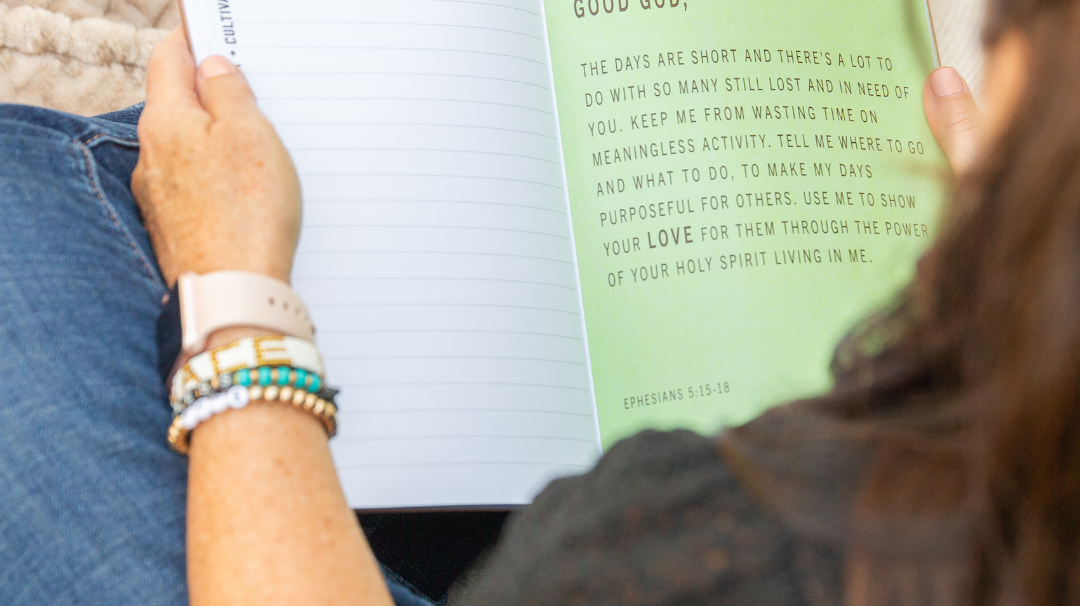 + CULTIV
GOOD GOD,
THE DAYS ARE SHORT AND THERE'S A LOT TO
DO WITH SO MANY STILL LOST AND IN NEED OF
YOU. KEEP ME FROM WASTING TIME ON
MEANINGLESS ACTIVITY. TELL ME WHERE TO GO
AND WHAT TO DO, TO MAKE MY DAYS
PURPOSEFUL FOR OTHERS. USE ME TO SHOW
YOUR LOVE FOR THEM THROUGH THE POWER
OF YOUR HOLY SPIRIT LIVING IN ME.
EPHESIANS 5:15-18